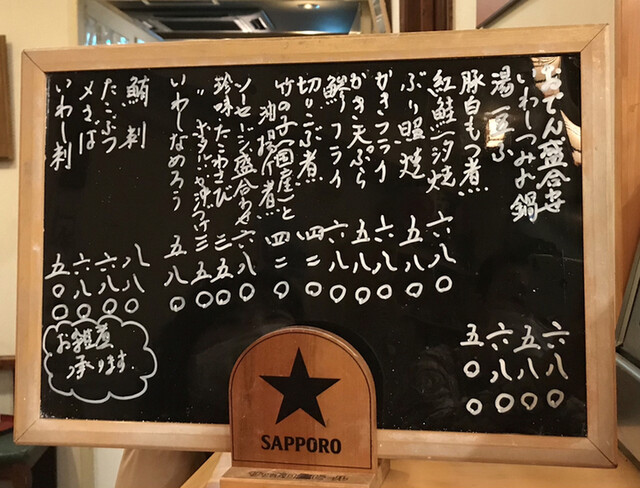 おでん盛合せ 六八〇
いわしつみれ鍋 五八〇
湯豆ふ 六八〇
豚白もつ煮 五〇〇
紅鮭一汐焼 六八〇
ぶり照焼 五八〇
かきフライ 六八〇
かき天ぷら 五八〇
鯵フライ 六八〇
切りこぶ煮 四二〇
竹の子(国産)と
油揚げ煮 四二〇
ソーセージ盛合わせ 六八〇
珍味.たこわさび 三五〇
〃 ホタルいか沖づけ 三五〇
いわしなめろう 五八〇
鮪刺 八八〇
たこぶつ 六八〇
〆さば 六八〇
いわし刺 五〇〇
お雑煮
承ります.
SAPPORO